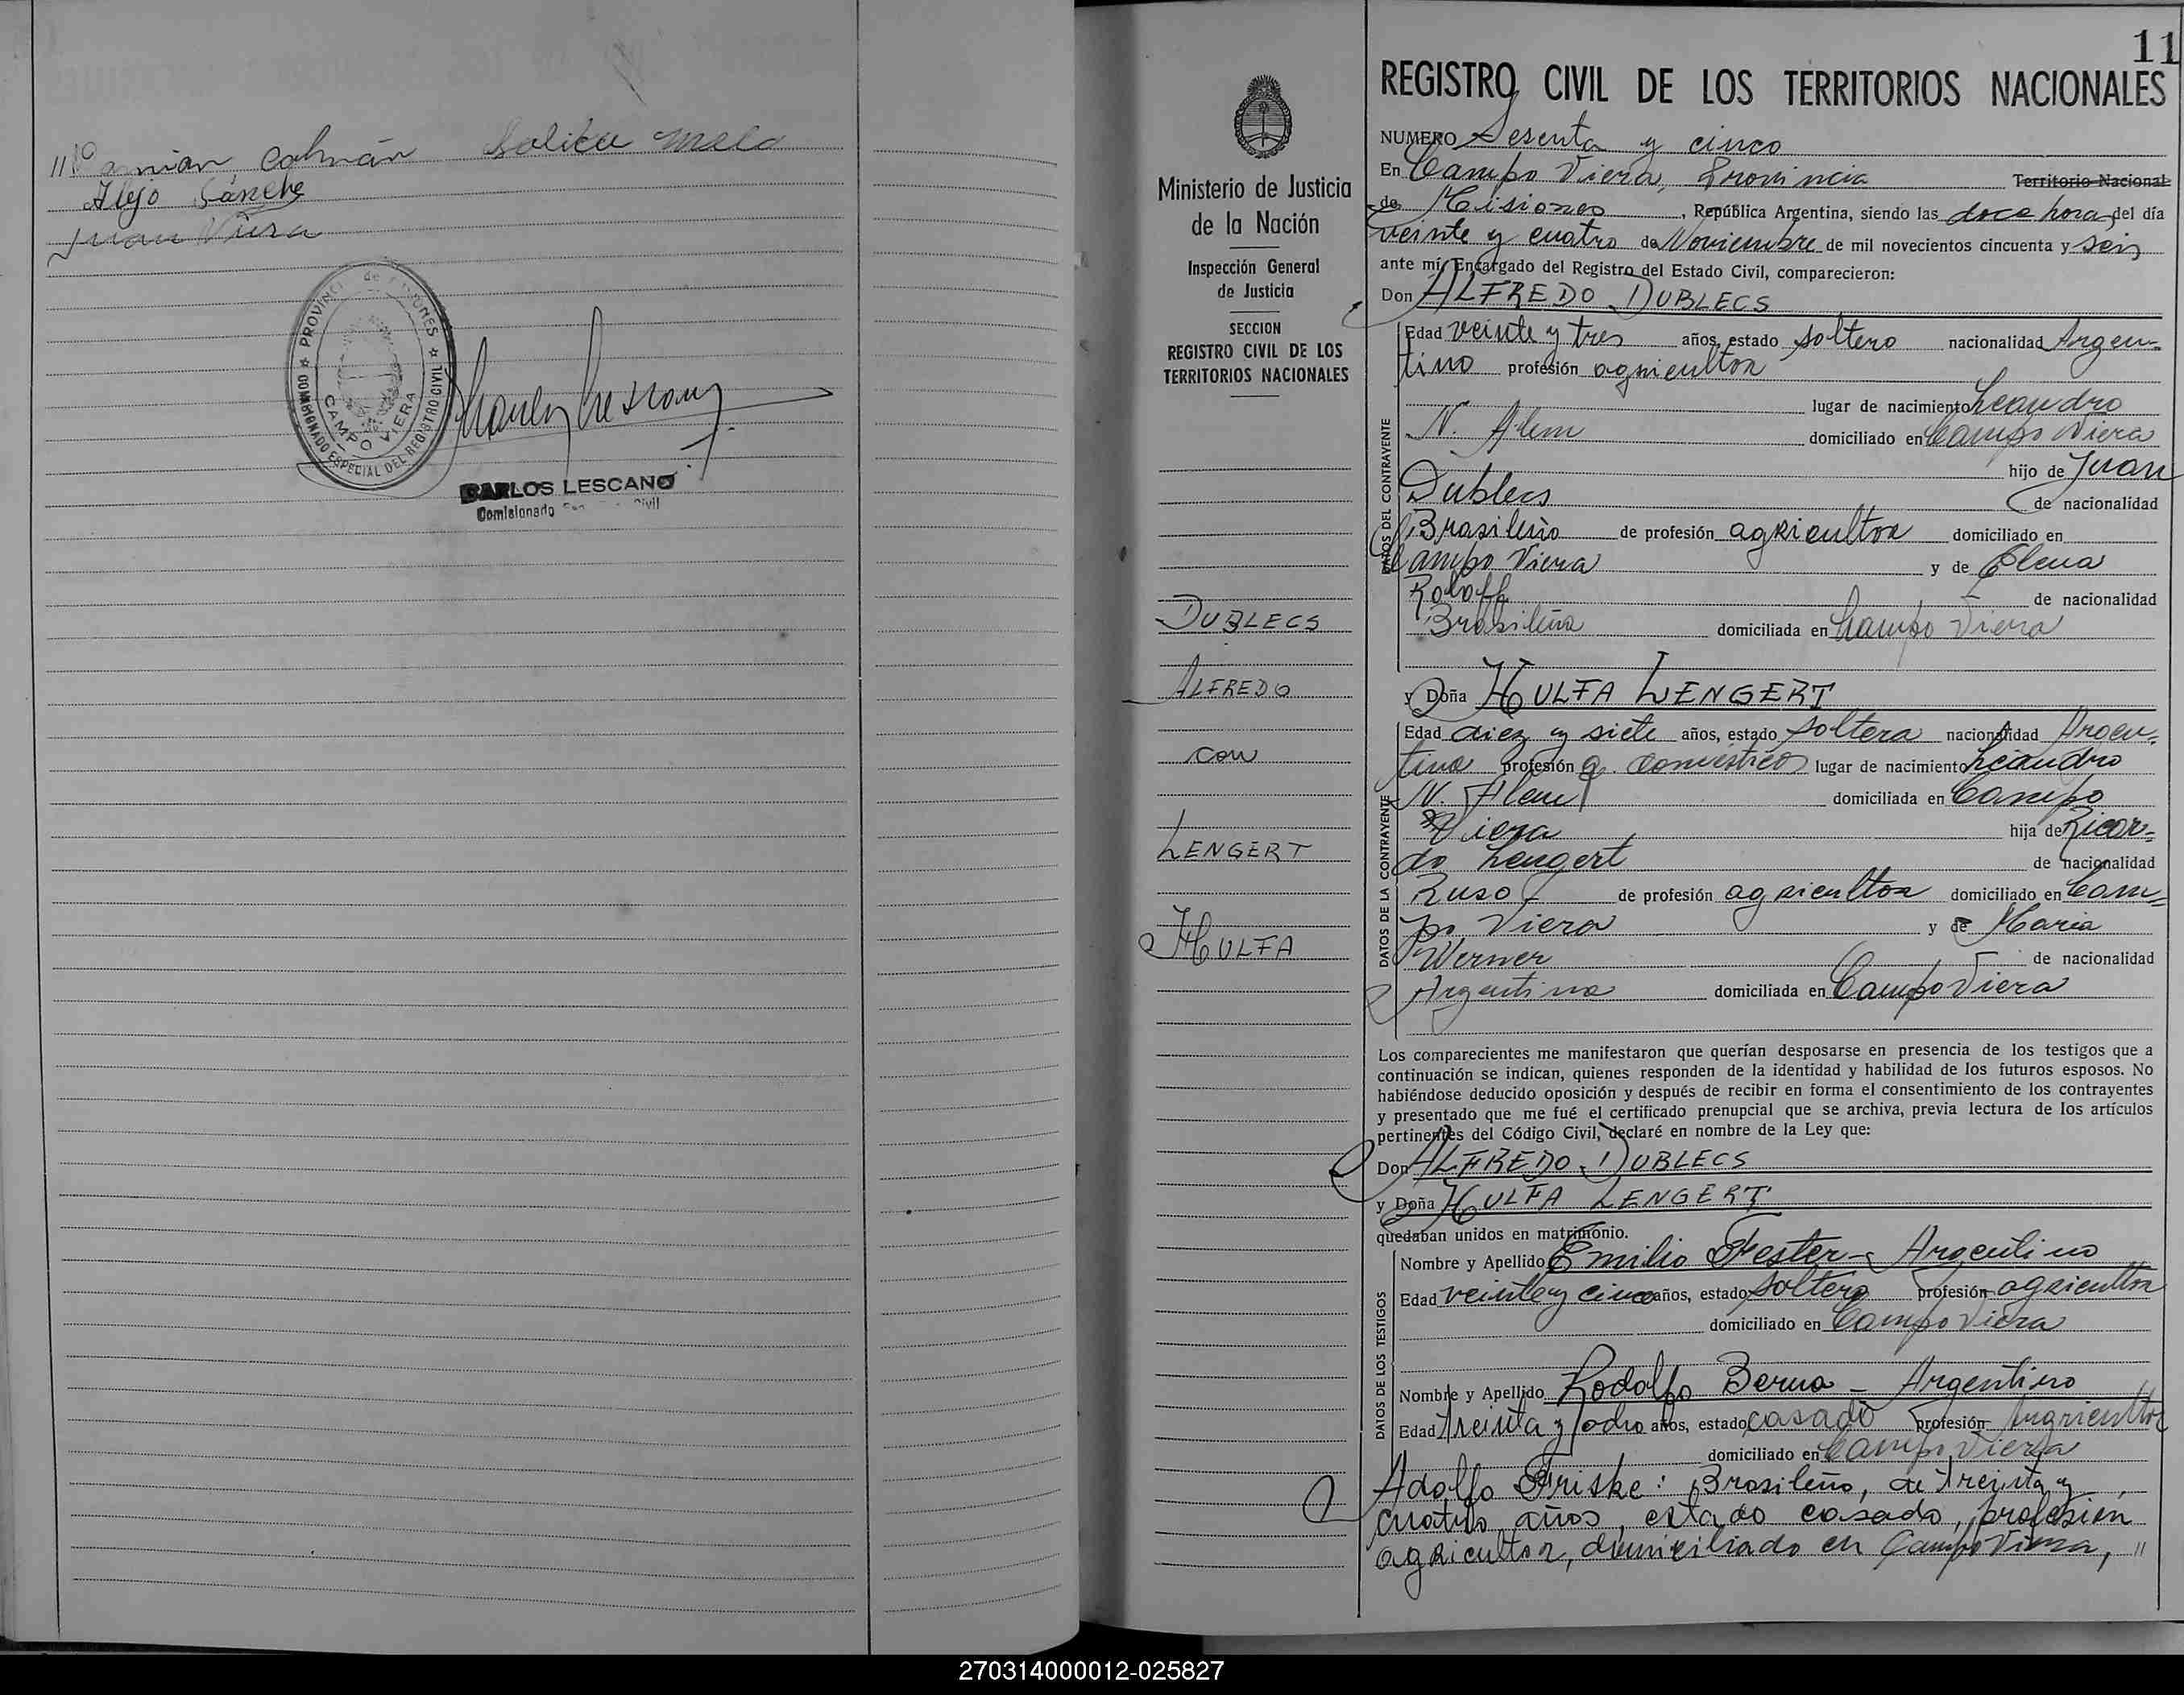 Colmán
Alejo
Juan Viera
PROVINCIA de MISIONES
COMISIONADO ESPECIAL DEL REGISTRO CIVIL
CAMPO VIERA
CARLOS LESCANO
Comisionado Civil
11
Ministerio de Justicia
de la Nación
Inspección General
de Justicia
SECCION
REGISTRO CIVIL DE LOS
TERRITORIOS NACIONALES
DUBLECS
ALFREDO
con
LENGERT
HULFA
REGISTRO CIVIL DE LOS TERRITORIOS NACIONALES
NUMERO Sesenta y cinco
En Campo Viera, Provincia Territorio Nacional
de Misiones, República Argentina, siendo las doce horas del día
veinte y cuatro de Noviembre de mil novecientos cincuenta y seis
ante mí, Encargado del Registro del Estado Civil, comparecieron:
Don ALFREDO DUBLECS
DATOS DEL CONTRAYENTE
Edad veinte y tres años, estado soltero nacionalidad Argen-
tino profesión agricultor
lugar de nacimiento Leandro
N. Alem domiciliado en Campo Viera
hijo de Juan
Dublecs de nacionalidad
Brasileño de profesión agricultor domiciliado en
Campo Viera y de Elena
Roloff de nacionalidad
Brasileña domiciliada en Campo Viera
y Doña HULFA LENGERT
DATOS DE LA CONTRAYENTE
Edad diez y siete años, estado soltera nacionalidad Argen-
tina profesión q. domésticos lugar de nacimiento Leandro
N. Alem domiciliada en Campo
Viera hija de Ricar-
do Lengert de nacionalidad
Ruso de profesión agricultor domiciliado en Cam-
po Viera y de María
Werner de nacionalidad
Argentina domiciliada en Campo Viera
Los comparecientes me manifestaron que querían desposarse en presencia de los testigos que a
continuación se indican, quienes responden de la identidad y habilidad de los futuros esposos. No
habiéndose deducido oposición y después de recibir en forma el consentimiento de los contrayentes
y presentado que me fué el certificado prenupcial que se archiva, previa lectura de los artículos
pertinentes del Código Civil, declaré en nombre de la Ley que:
Don ALFREDO DUBLECS
y Doña HULFA LENGERT
quedaban unidos en matrimonio.
DATOS DE LOS TESTIGOS
Nombre y Apellido Emilio Fester - Argentino
Edad veinte y cinco años, estado soltero profesión agricultor
domiciliado en Campo Viera
Nombre y Apellido Rodolfo Berna - Argentino
Edad treinta y ocho años, estado casado profesión Agricultor
domiciliado en Campo Viera
Adolfo Friske: Brasileño, de treinta y
cuatro años, estado casado, profesión
agricultor, domiciliado en Campo Viera, //
270314000012-025827